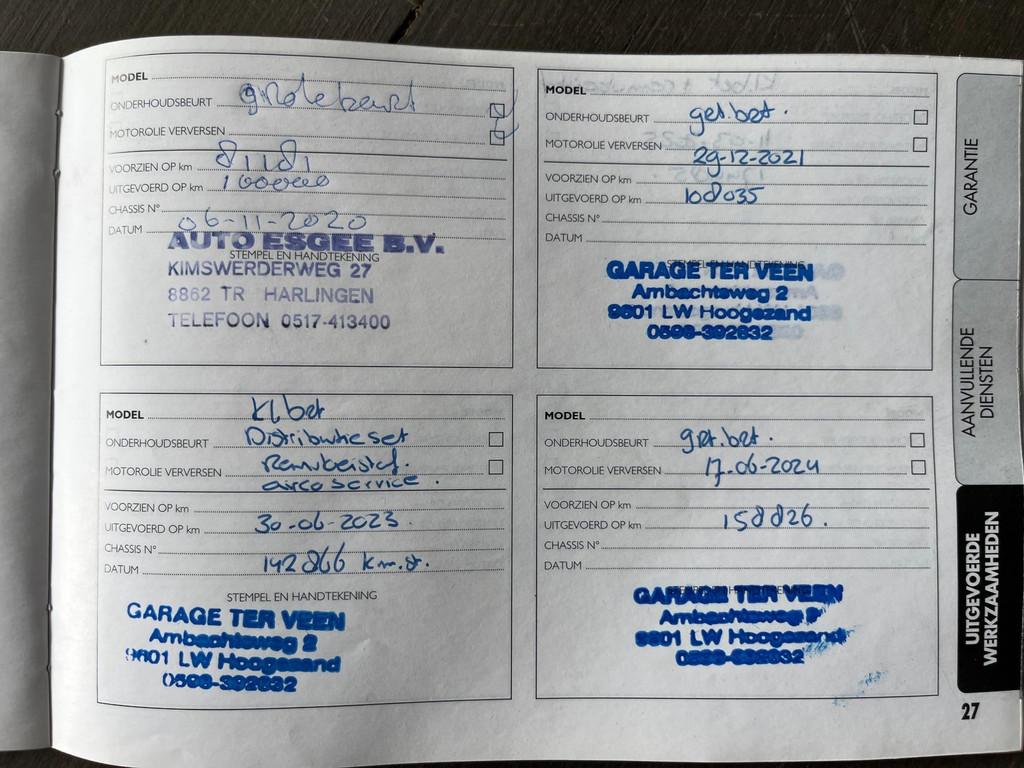 MODEL
ONDERHOUDSBEURT grote beurt
MOTOROLIE VERVERSEN
VOORZIEN OP km 81181
UITGEVOERD OP km 100000
CHASSIS N°
DATUM 06-11-2020
STEMPEL EN HANDTEKENING
AUTO ESGEE B.V.
KIMSWERDERWEG 27
8862 TR HARLINGEN
TELEFOON 0517-413400
MODEL
ONDERHOUDSBEURT grt.bet.
MOTOROLIE VERVERSEN 29-12-2021
VOORZIEN OP km
UITGEVOERD OP km 108035
CHASSIS N°
DATUM
STEMPEL EN HANDTEKENING
GARAGE TER VEEN
Ambachtsweg 2
9601 LW Hoogezand
0598-392632
MODEL kl bet
ONDERHOUDSBEURT Distributie set
MOTOROLIE VERVERSEN Remvloeistof.
airco service.
VOORZIEN OP km
UITGEVOERD OP km 30-06-2023.
CHASSIS N°
DATUM 142866 km.st.
STEMPEL EN HANDTEKENING
GARAGE TER VEEN
Ambachtsweg 2
9601 LW Hoogezand
0598-392632
MODEL
ONDERHOUDSBEURT grt.bet.
MOTOROLIE VERVERSEN 17-06-2024
VOORZIEN OP km
UITGEVOERD OP km 158826.
CHASSIS N°
DATUM
GARAGE TER VEEN
Ambachtsweg 2
9601 LW Hoogezand
0598-392632
GARANTIE
AANVULLENDE
DIENSTEN
UITGEVOERDE
WERKZAAMHEDEN
27